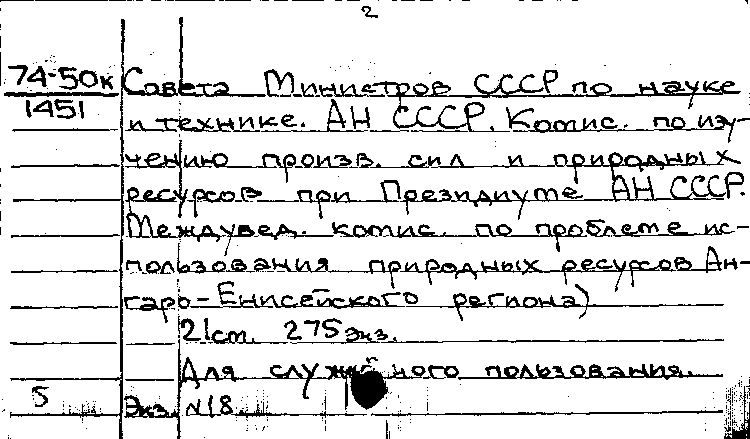 2
74-50к Совета Министров СССР по науке
1451
и технике. АН СССР. Комис. по изу-
чению произв. сил и природных
ресурсов при Президиуме АН СССР.
Междувед. комис. по проблеме ис-
пользования природных ресурсов Ан-
гаро-Енисейского региона)
21 ст. 275 экз.
Для служебного пользования.
5 Экз. №18.